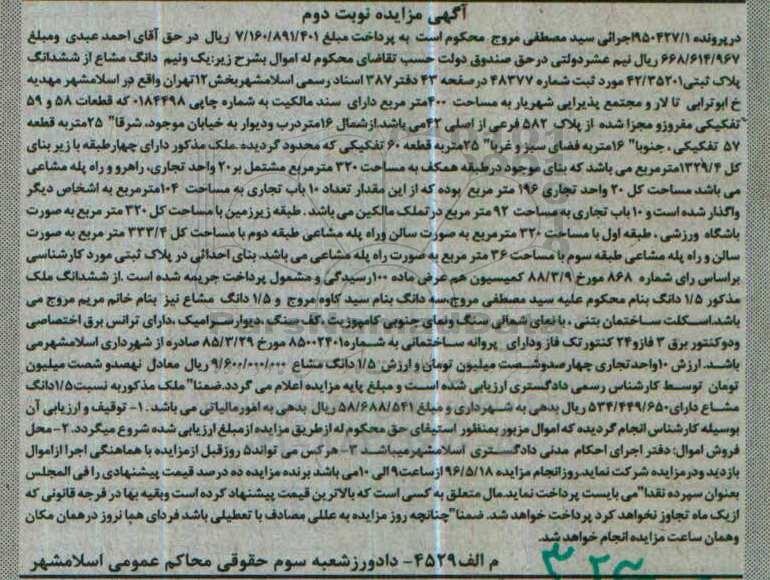 آگهی مزایده نوبت دوم
در پرونده ۹۵۰۴۲۷/۱اجرائی سید مصطفی مروج محکوم است به پرداخت مبلغ ۷/۱۶۰/۸۹۱/۴۰۱ ریال در حق آقای احمد عبدی ومبلغ
۶۶۸/۶۱۴/۹۶۷ ریال نیم عشردولتی درحق صندوق دولت حسب تقاضای محکوم له اموال بشرح زیر:یک ونیم دانگ مشاع از ششدانگ
پلاک ثبتی۴۲/۳۵۲۰۱ مورد ثبت شماره ۴۸۳۷۷ درصفحه ۴۳ دفتر۳۸۷ اسناد رسمی اسلامشهربخش۱۲تهران واقع در اسلامشهر مهدیه
خ ابوترابی تا لار و مجتمع پذیرایی شهریار به مساحت ۴۰۰متر مربع دارای سند مالکیت به شماره چاپی ۰۱۸۴۴۹۸ که قطعات ۵۸ و ۵۹
تفکیکی مفروزو مجزا شده از پلاک ۵۸۲ فرعی از اصلی ۴۲می باشد.ازشمال ۱۶متردرب ودیوار به خیابان موجود، شرقا" ۲۵متربه قطعه
۵۷ تفکیکی ، جنوبا" ۱۶متربه فضای سبز و غربا" ۲۵متربه قطعه ۶۰ تفکیکی که محدود گردیده .ملک مذکور دارای چهارطبقه با زیر بنای
کل ۱۳۲۹/۴مترمربع می باشد که بنای موجود درطبقه همکف به مساحت ۳۲۰ مترمربع مشتمل بر۲۰ واحد تجاری، راهرو و راه پله مشاعی
می باشد مساحت کل ۲۰ واحد تجاری ۱۹۶ متر مربع بوده که از این مقدار تعداد ۱۰ باب تجاری به مساحت ۱۰۴مترمربع به اشخاص دیگر
واگذار شده است و ۱۰ باب تجاری به مساحت ۹۲ متر مربع درتملک مالکین می باشد . طبقه زیرزمین با مساحت کل ۳۲۰ متر مربع به صورت
باشگاه ورزشی ، طبقه اول با مساحت ۳۲۰ مترمربع به صورت سالن وراه پله مشاعی طبقه دوم با مساحت کل ۳۳۳/۴ متر مربع به صورت
سالن و راه پله مشاعی طبقه سوم با مساحت ۳۶ متر مربع به صورت راه پله مشاعی می باشد. بنای احداثی در پلاک ثبتی مورد کارشناسی
براساس رای شماره ۸۶۸ مورخ ۸۸/۳/۹ کمیسیون هم عرض ماده ۱۰۰رسیدگی و مشمول پرداخت جریمه شده است .از ششدانگ ملک
مذکور ۱/۵ دانگ بنام محکوم علیه سید مصطفی مروج،سه دانگ بنام سید کاوه مروج و ۱/۵ دانگ مشاع نیز بنام خانم مریم مروج می
باشد.اسکلت ساختمان بتنی ، با نمای شمالی سنگ ونمای جنوبی کامپوزیت،کف سنگ ، دیوارسرامیک ،دارای ترانس برق اختصاصی
ودوکنتور برق ۳ فازو۲۴ کنتورتک فاز ودارای پروانه ساختمانی به شماره۸۵۰۰۲۴۰۱ مورخ ۸۵/۳/۲۹ صادره از شهرداری اسلامشهرمی
باشد. ارزش ۱۰واحدتجاری چهارصدوشصت میلیون تومان و ارزش ۱/۵ دانگ مشاع ۹/۶۰۰/۰۰۰/۰۰۰ ریال معادل نهصدو شصت میلیون
تومان توسط کارشناس رسمی دادگستری ارزیابی شده است و مبلغ پایه مزایده اعلام می گردد.ضمنا" ملک مذکوربه نسبت۱/۵دانگ
مشاع دارای۵۳۴/۴۴۹/۶۵۰ ریال بدهی به شهرداری و مبلغ ۵۸/۶۸۸/۵۴۱ ریال بدهی به امورمالیاتی می باشد . ۱- توقیف و ارزیابی آن
بوسیله کارشناس انجام گردیده که اموال مزبور بمنظور استیفای حق محکوم له ازطریق مزایده ازمبلغ ارزیابی شده شروع میگردد .۲- محل
فروش اموال: دفتر اجرای احکام مدنی دادگستری اسلامشهرمیباشد ۳-هرکس می تواند۵ روزقبل ازمزایده با هماهنگی اجرا ازاموال
بازدید ودرمزایده شرکت نماید.روزانجام مزایده ۹۶/۵/۱۸ ازساعت۹ الی ۱۰می باشد برنده مزایده ده درصد قیمت پیشنهادی را فی المجلس
بعنوان سپرده نقدا"می بایست پرداخت نماید.مال متعلق به کسی است که بالاترین قیمت پیشنهاد کرده است وبقیه بها در فرجه قانونی که
از یک ماه تجاوز نخواهد کرد پرداخت خواهد شد. ضمنا"چنانچه روز مزایده به عللی مصادف با تعطیلی باشد فردای همان روز درهمان مکان
وهمان ساعت مزایده انجام خواهد شد.
م الف۴۵۲۹- دادورزشعبه سوم حقوقی محاکم عمومی اسلامشهر